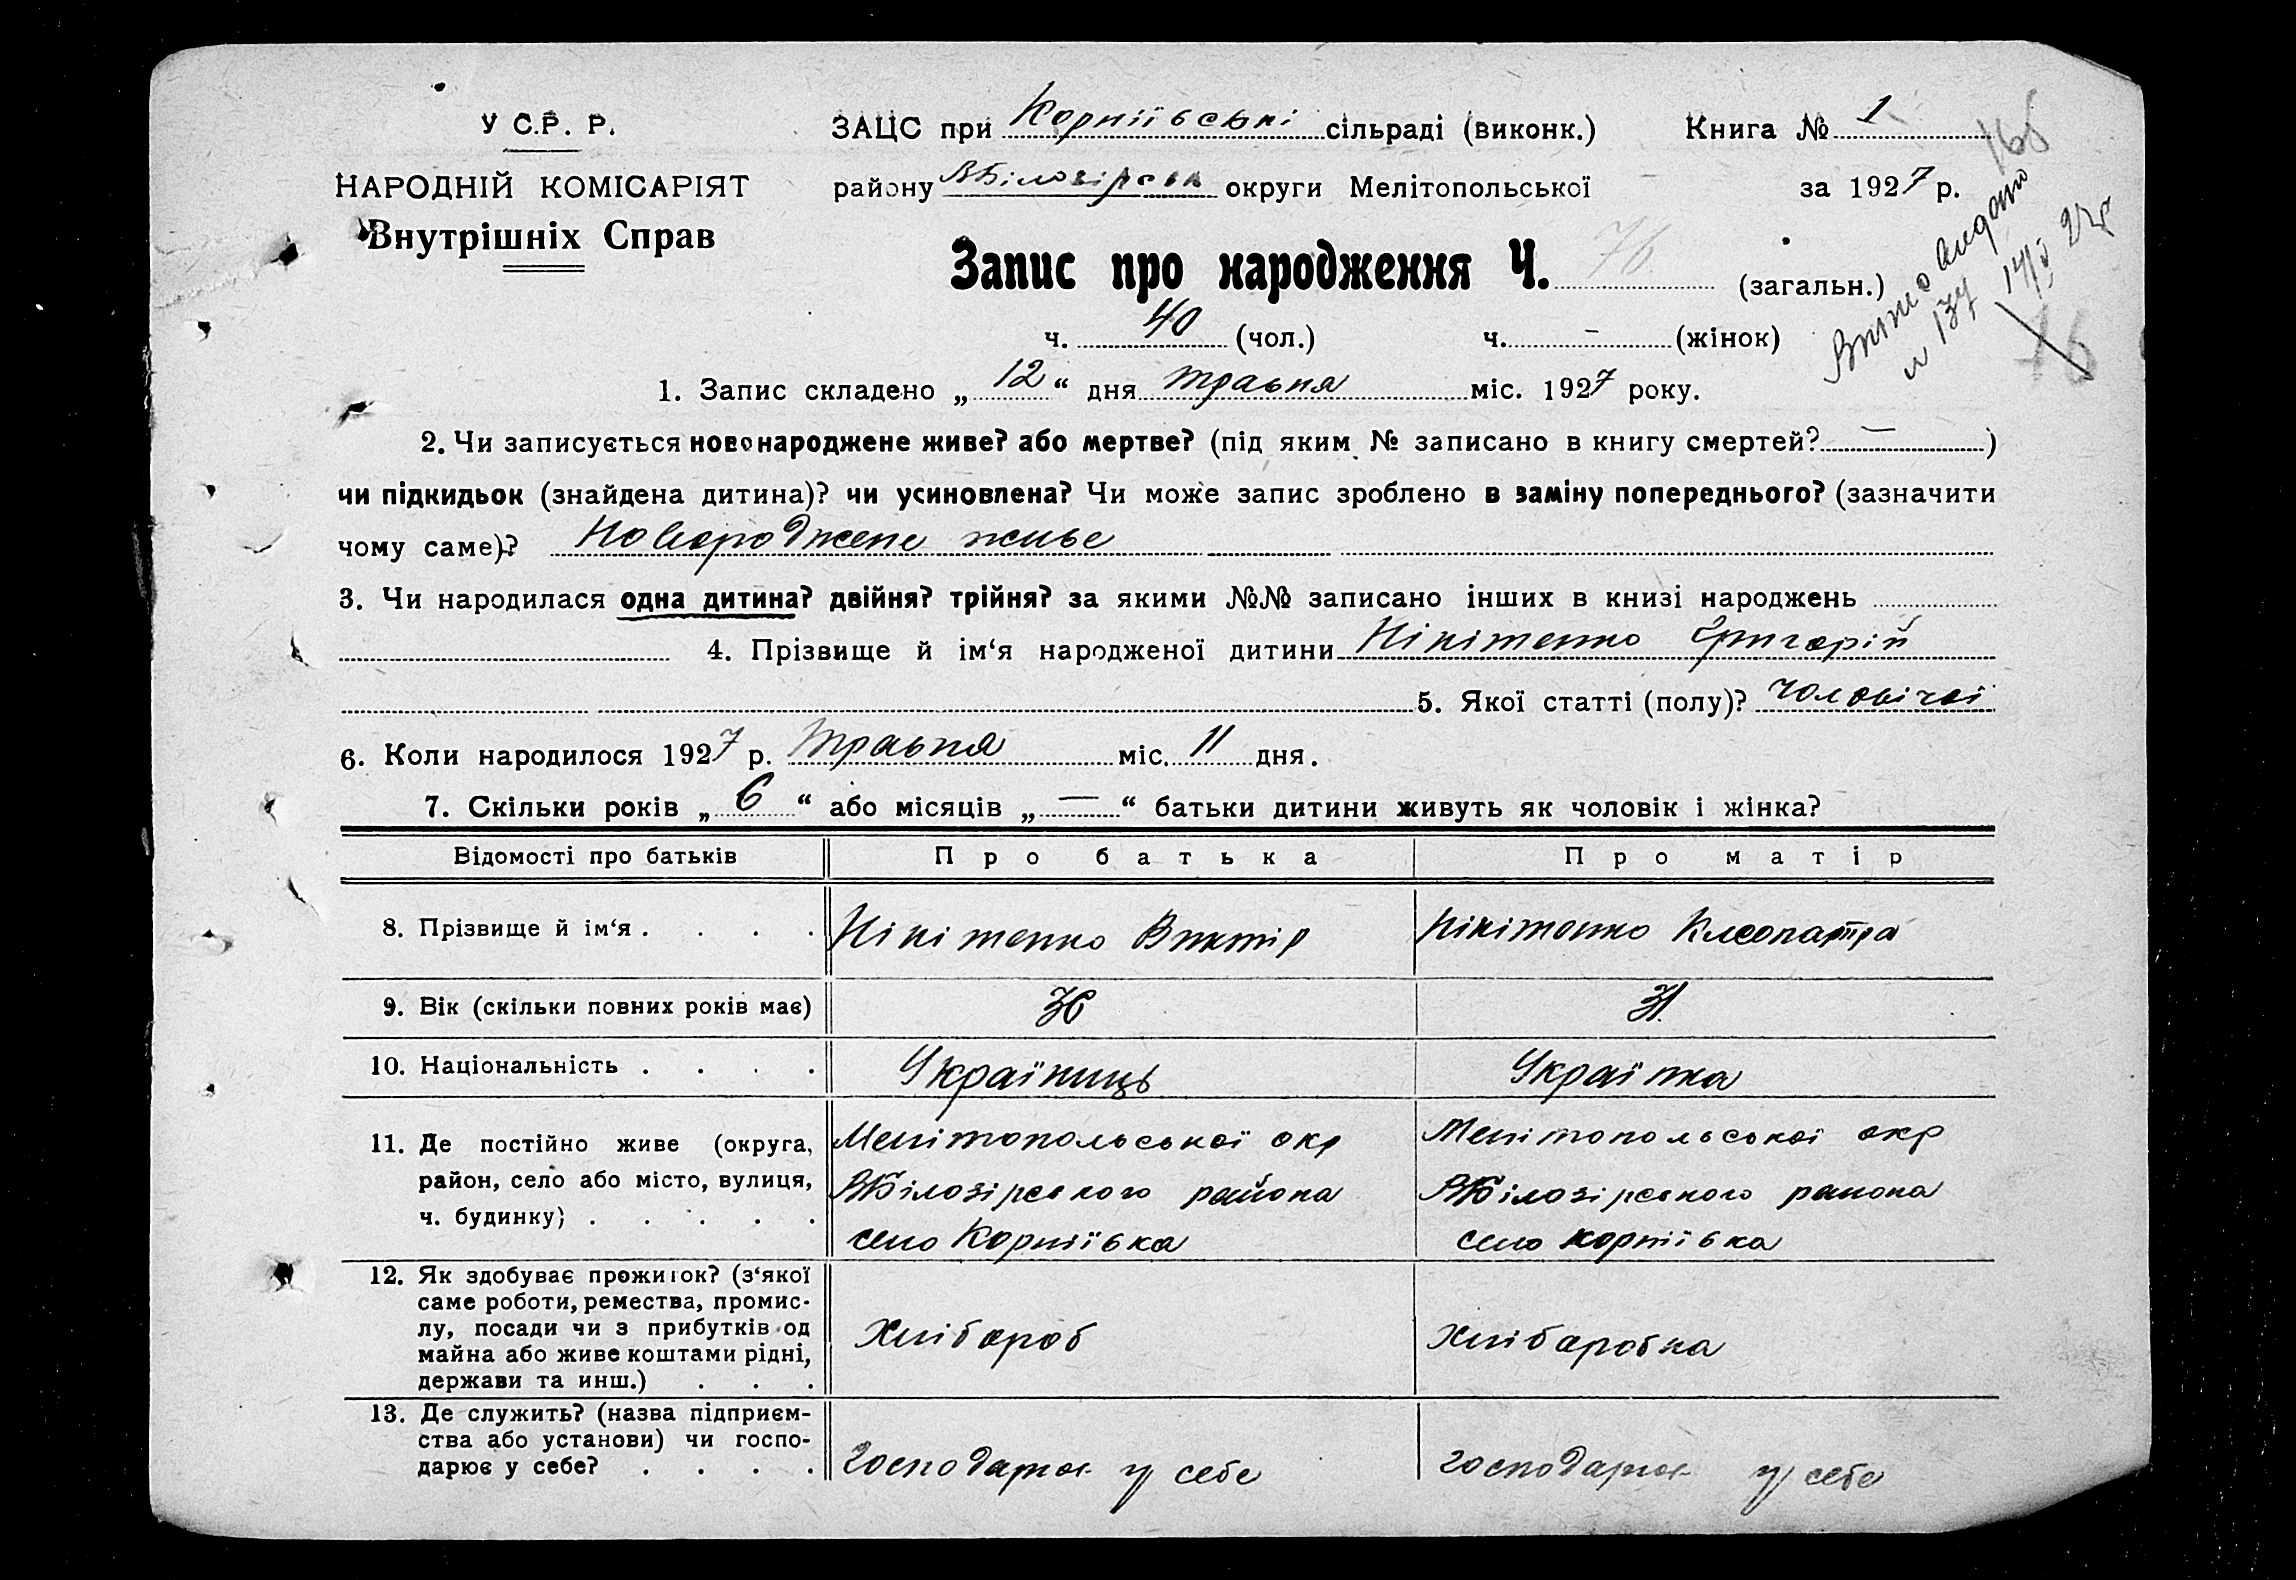 У С.Р. Р.
НАРОДНІЙ КОМІСАРІЯТ
Внутрішніх Справ
ЗАЦС при Корніївські сільраді (виконк.) Книга № 1
району ВБілозірськ округи Мелітопольської за 1927 р.
Запис про народження Ч. 76 (загальн.)
ч. 40 (чол.) ч. – (жінок)
1. Запис складено „ 12 “ дня травня міс. 1927 року.
2. Чи записується новонароджене живе? або мертве? (під яким № записано в книгу смертей? — )
чи підкидьок (знайдена дитина)? чи усиновлена? Чи може запис зроблено в заміну попереднього? (зазначити
чому саме)? Новороджене живе
3. Чи народилася одна дитина? двійня? трійня? за якими №№ записано інших в книзі народжень
4. Прізвище й ім‘я народженої дитини Нікітенко Григорій
5. Якої статті (полу)? чоловічої
6. Коли народилося 1927 р. Травня міс. 11 дня.
7. Скільки років „ 6 “ або місяців „ — “ батьки дитини живуть як чоловік і жінка?
Відомості про батьків Про батька Про матір
8. Прізвище й ім‘я . . . . Нікітенко Виктір Нікітенко Клеопатра
9. Вік (скільки повних років має) 31
10. Національність . . . . Україниць Українка
11. Де постійно живе (округа, Мелітопольської окр Мелітопольскоі окр
район, село або місто, вулиця, ВБілозірского района ВБілозірского района
ч. будинку) . . . . . село Корніївка село корніївка
12. Як здобуває прожиток? (з‘якої
саме роботи, ремества, промис-
лу, посади чи з прибутків од Хлібороб Хлібаробка
майна або живе коштами рідні,
держави та инш.) . . .
13. Де служить? (назва підприєм-
ства або установи) чи госпо-
дарює у себе? . . . . Господарює у себе господарює у себе
165
14/V 27р
76